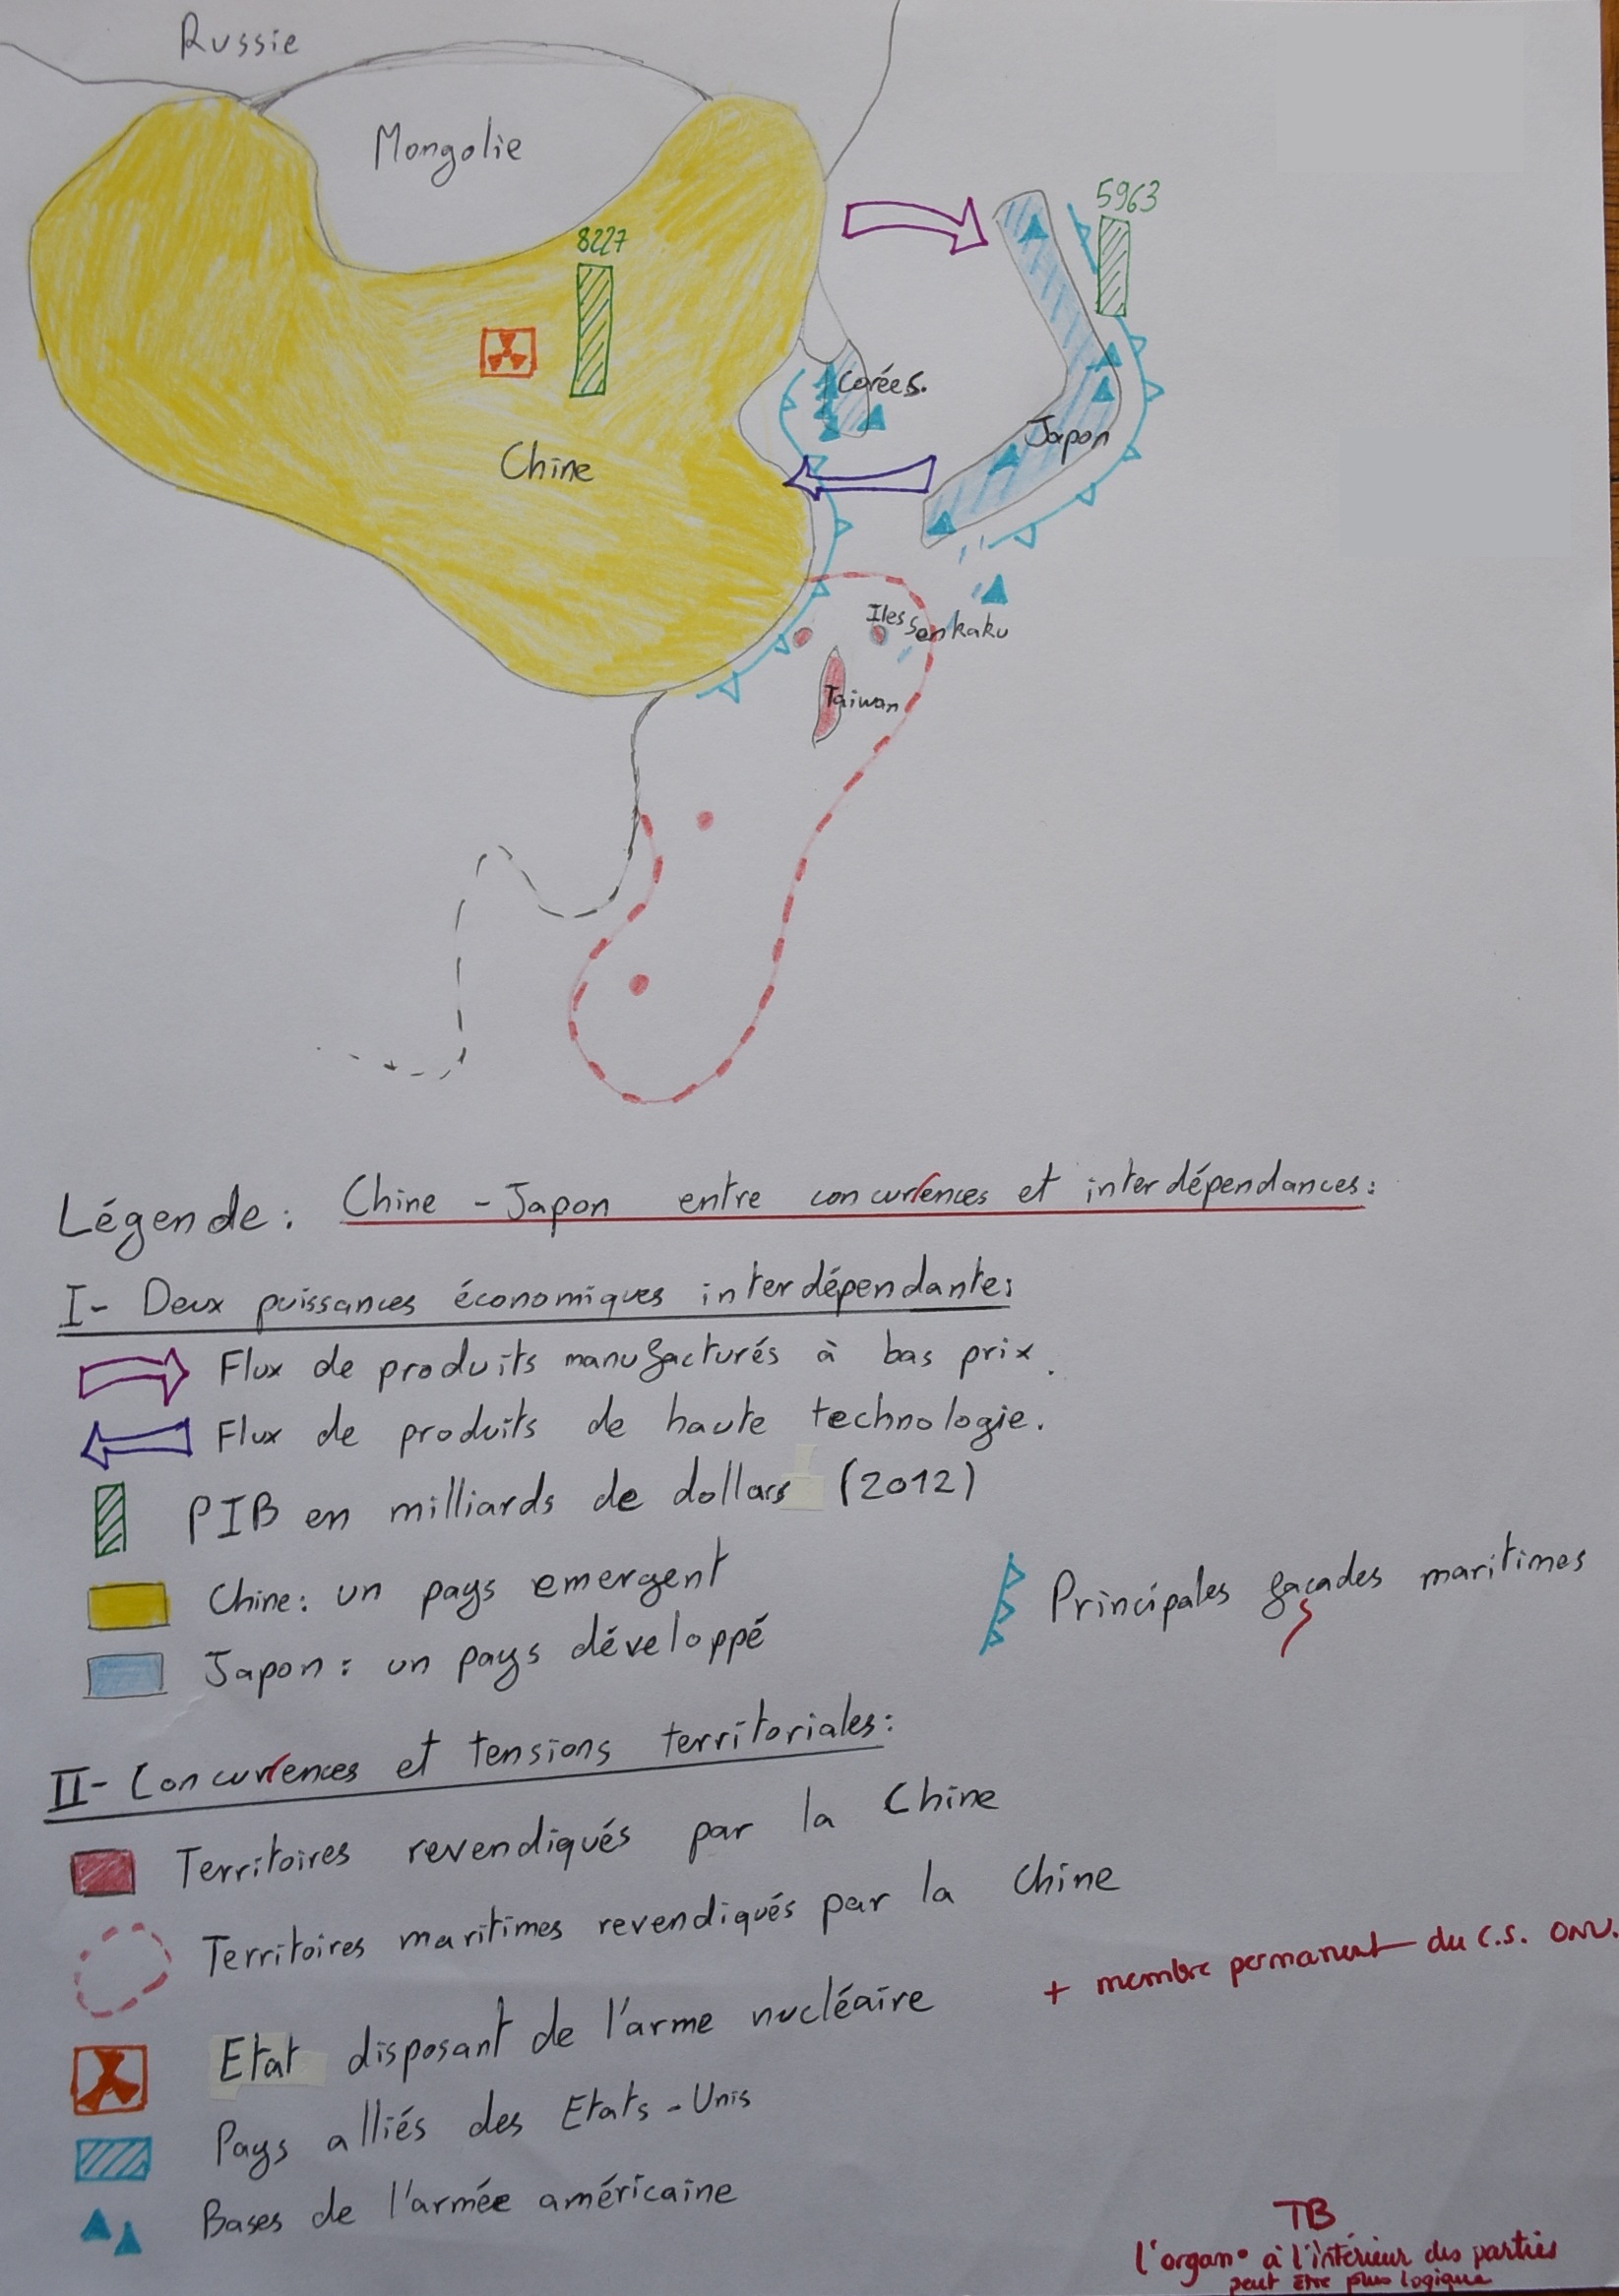 Russie
Mongolie
8227
5963
Corées.
Chine
Japon
Iles Senkaku
Taiwan
Légende: Chine - Japon entre concurrences et interdépendances:
I- Deux puissances économiques interdépendantes
Flux de produits manufacturés à bas prix.
Flux de produits de haute technologie.
PIB en milliards de dollars (2012)
Chine: un pays emergent
Principales façades maritimes
Japon: un pays développé
II- Concurrences et tensions territoriales:
Territoires revendiqués par la Chine
Territoires maritimes revendiqués par la Chine
+ membre permanent du C.S. ONU.
Etat disposant de l'arme nucléaire
Pays alliés des Etats-Unis
Bases de l'armée américaine
TB
l'organ° à l'intérieur des parties
peut être plus logique